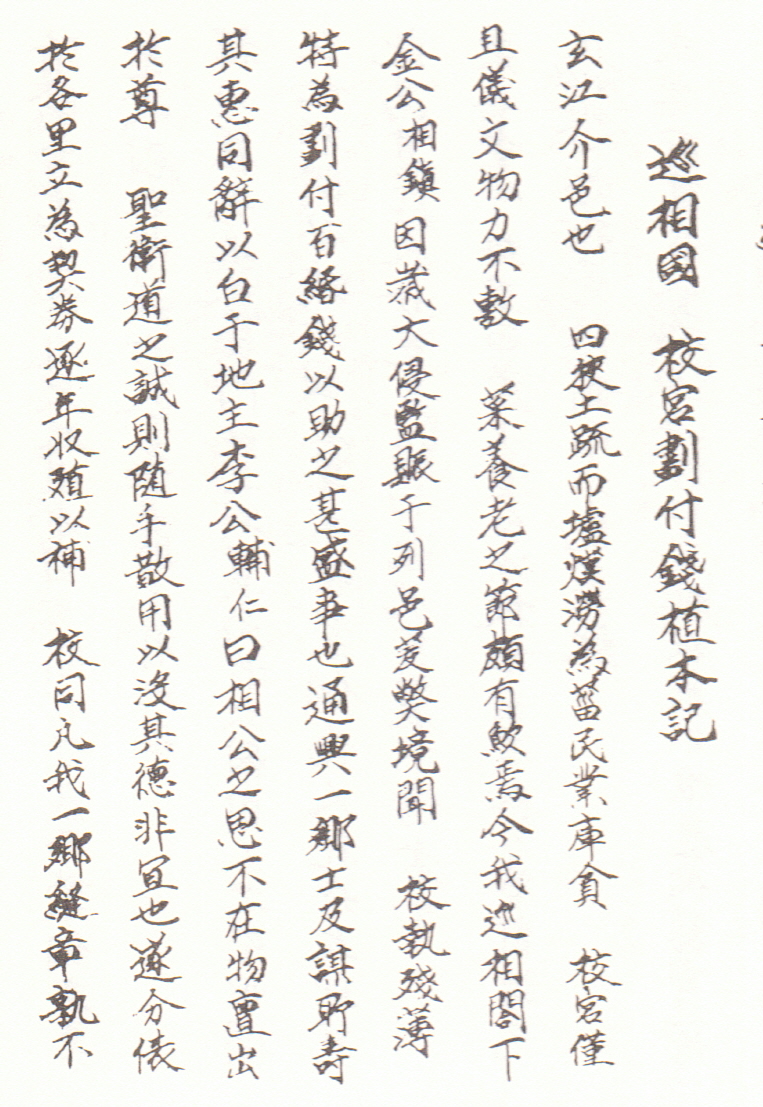 巡相國 校宮劃付錢植本記
玄江介邑也 四挾土疏而墟熯澇為菑民業庫貪 校宮僅
且儀文物力不敷 菜養老之節頗有歉焉今我巡相閤下
金公相鎮因荒大侵監賑于列邑茇獘境聞 校執殘薄
特為劃付百緡錢以助之甚盛事也通興一鄉士及謀所壽
其惠同辭以白于地主李公輔仁曰相公之思不在物亶出
於尊 聖衛道之誠則随手散用以沒其德非宜也遂分俵
於各里立為契券逐年收殖以補 校同凡我一鄉縫章孰不